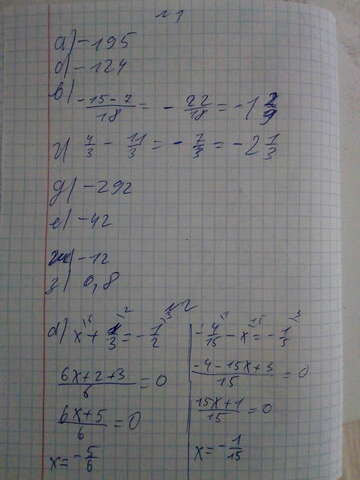 №1
а) -195
б) -124
в) (-15-7)/18 = -22/18 = -1 2/9
г) 4/3 - 11/3 = -7/3 = -2 1/3
д) -292
е) -42
ж) -12
з) 0,8
№2
а) x + 1/3 = -1/2
(6x+2+3)/6 = 0
(6x+5)/6 = 0
x = -5/6
-4/15 - x = -1/5
(-4-15x+3)/15 = 0
(15x+1)/15 = 0
x = -1/15